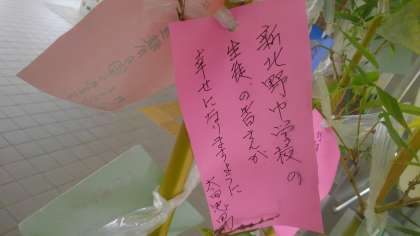 新北野中学校の
生徒、の皆さんが
幸せになりますように